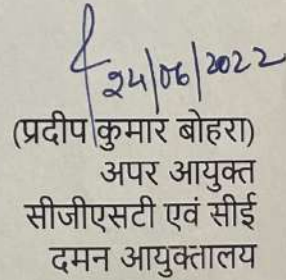 24/06/2022
(प्रदीप कुमार बोहरा)
अपर आयुक्त
सीजीएसटी एवं सीई
दमन आयुक्तालय